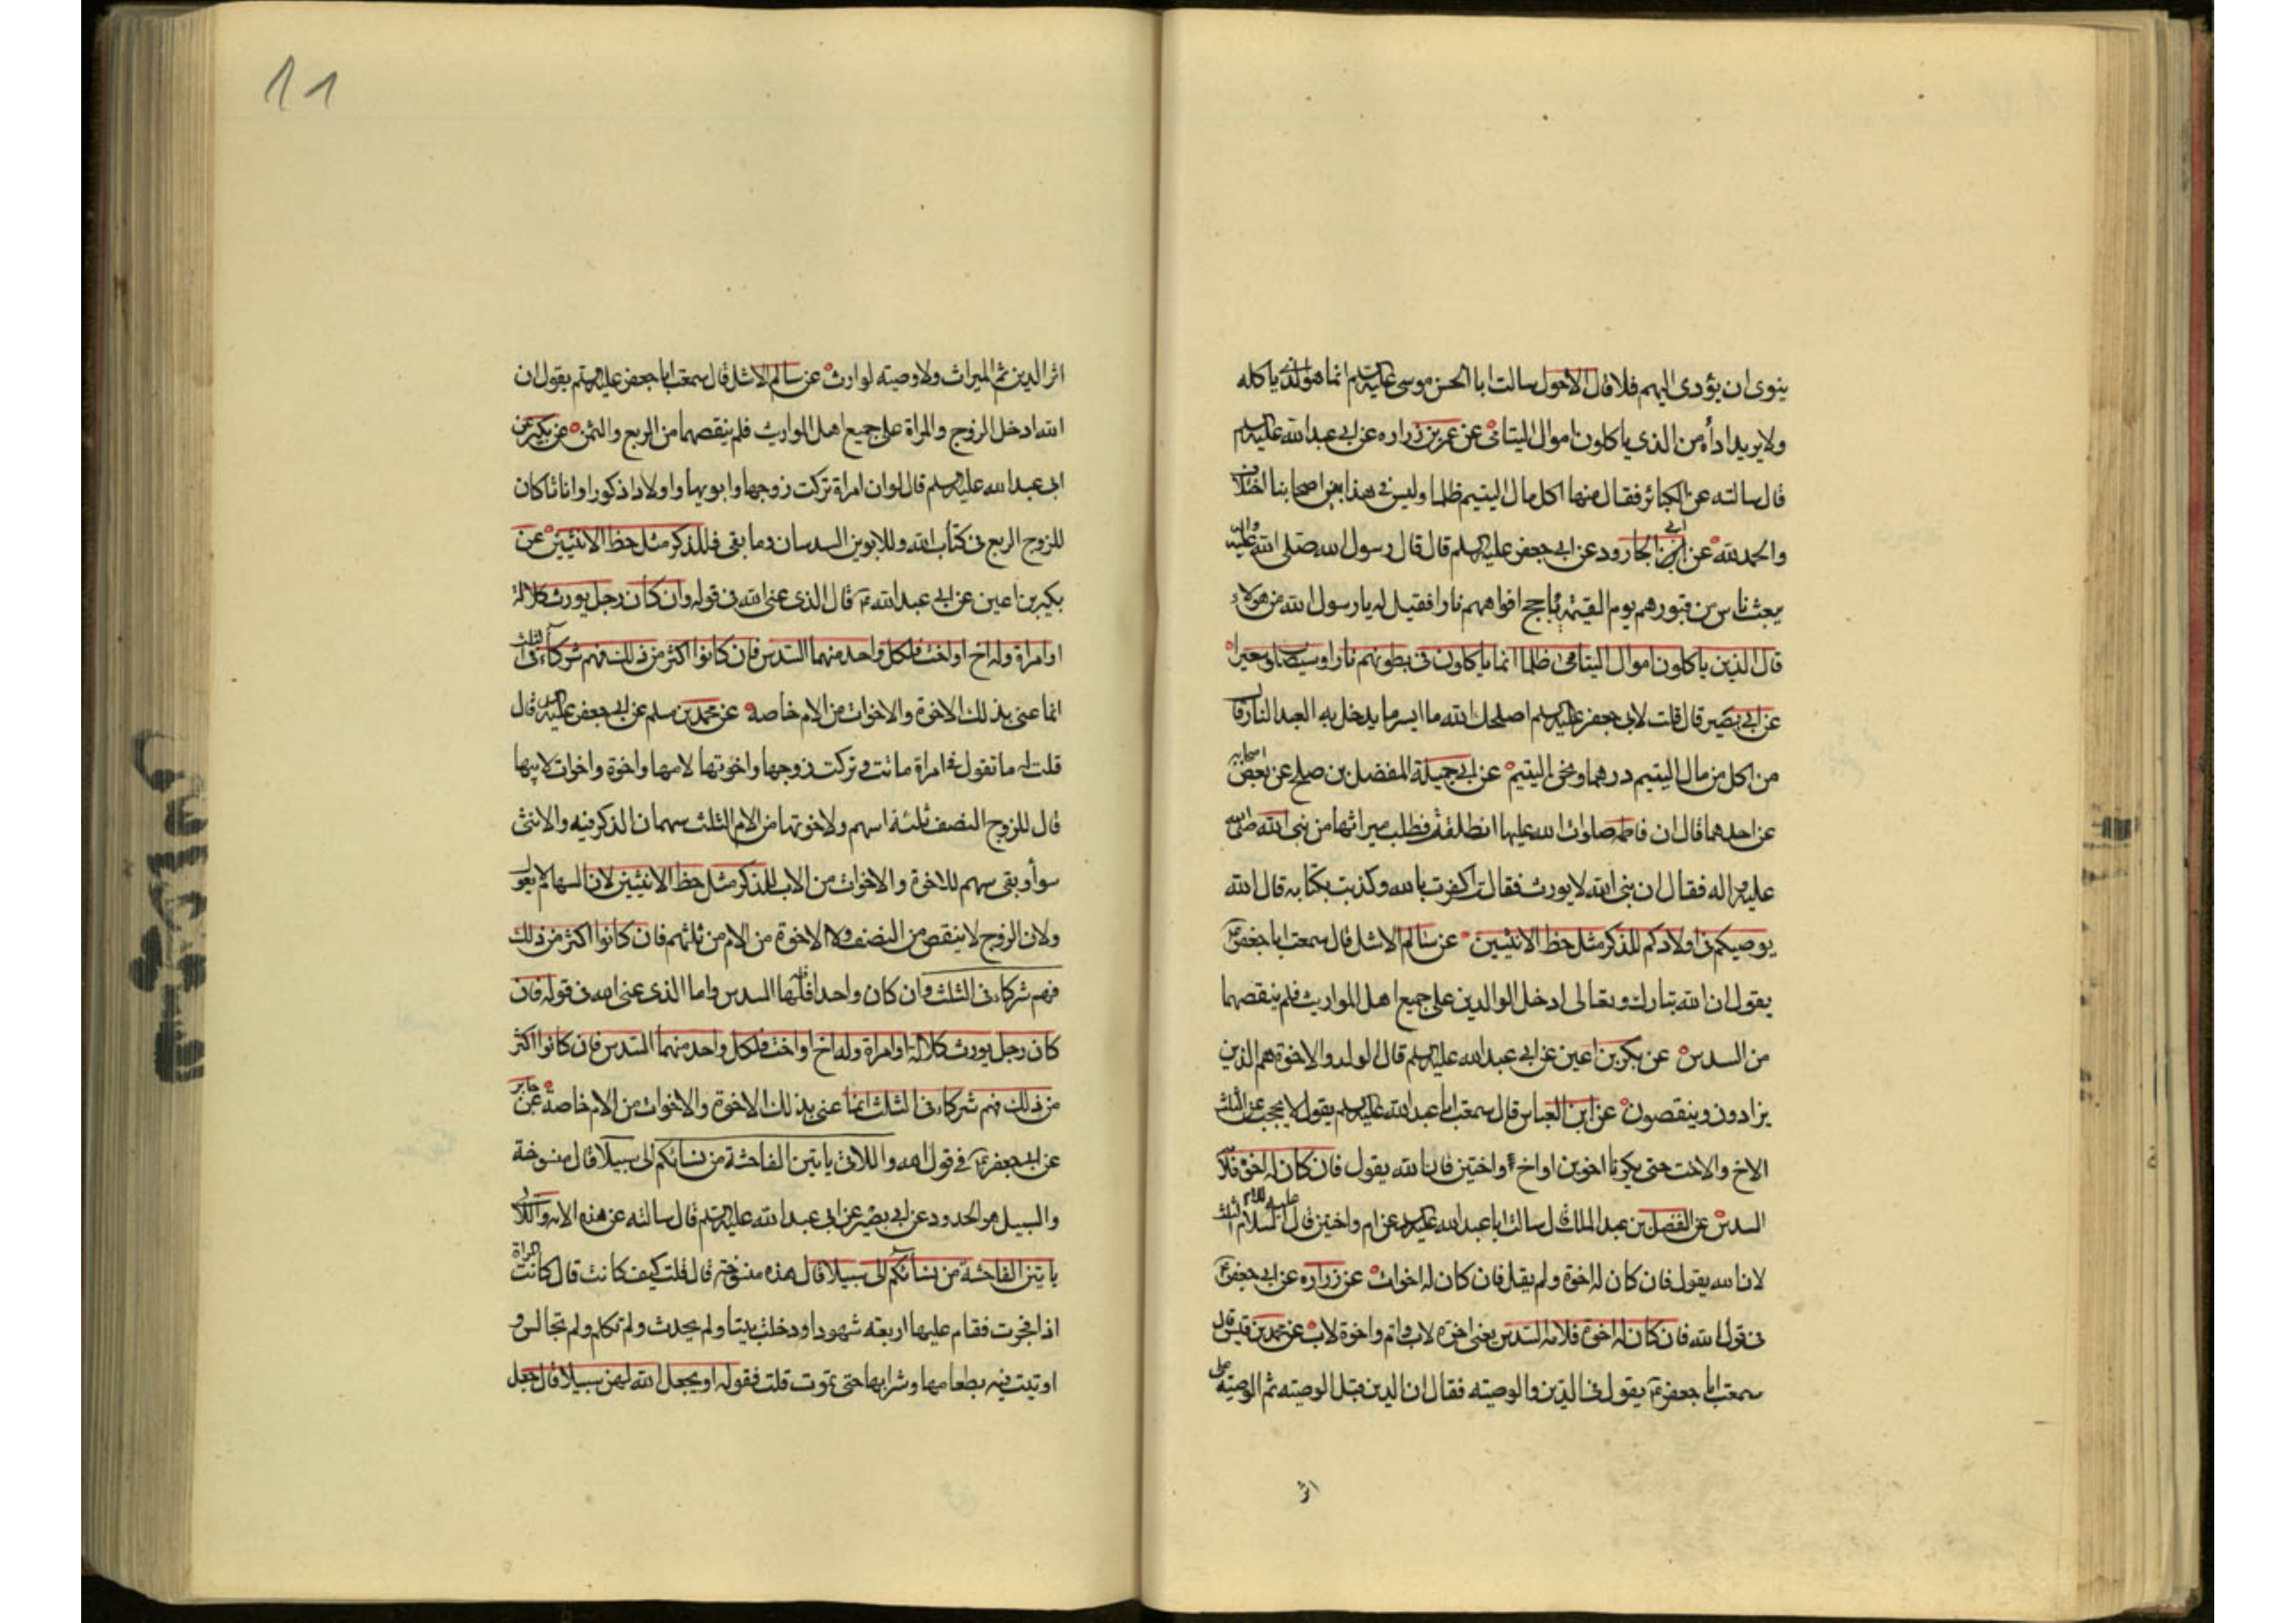 ينوى ان يؤدى اليهم فلا قال الاحول سالت ابا الحسن موسى عليه السلم انما هو الذى ياكله
ولا يريد اداه من الذى ياكلون اموال اليتامى عن عمر بن زراره عن ابى عبد الله عليه السلم
قال سالته عن الكبائر فقال منها اكل مال اليتيم ظلما وليس فى هذا بين اصحابنا اختلاف
والحمد لله عن ابى الجارود عن ابى جعفر عليه السلم قال قال رسول الله صلى الله عليه واله
يبعث ناس من قبورهم يوم القيمة تاجج افواههم نارا فقيل له يا رسول الله من هؤلاء
قال الذين ياكلون اموال اليتامى ظلما انما ياكلون فى بطونهم نارا وسيصلون سعيرا
عن ابى بصير قال قلت لابى جعفر عليه السلم اصلحك الله ما ايسر ما يدخل به العبد النار قال
من اكل من مال اليتيم درهما ونحن اليتيم عن ابى جميلة المفضل بن صلح عن بعض اصحابه
عن احدهما قال ان فاطمه صلوات الله عليها انطلقت فطلب ميراثها من نبى الله صلى الله
عليه واله فقال ان نبى الله لا يورث فقالت اكفرت بالله وكذبت بكتابه قال الله
يوصيكم فى اولادكم للذكر مثل حظ الانثيين عن سالم الاشل قال سمعت ابا جعفر ع
يقول ان الله تبارك وتعالى ادخل الوالدين على جميع اهل المواريث فلم ينقصهما
من السدس عن بكر بن اعين عن ابى عبد الله عليه السلم قال الولد والاخوة هم الذين
يزادون وينقصون عن ابن العباس قال سمعت ابا عبد الله عليه السلم يقول لا يحجب عن الثلث
الاخ والاخت حتى يكونا اخوين او اخ واختين فان الله يقول فان كان له اخوة فلامه
السدس عن الفضل بن عبد الملك قال سالت ابا عبد الله عليه السلم عن ام واختين قال عليه السلام الثلث
لان الله يقول فان كان له اخوة ولم يقل فان كان له اخوات عن زراره عن ابى جعفر ع
فى قول الله فان كان له اخوة فلامه السدس يعنى اخوة لاب وام واخوة لاب عن محمد بن قيس قال
سمعت ابا جعفر ع يقول فى الدين والوصيه فقال ان الدين قبل الوصيه ثم الوصيه على
اثر
11
اثر الدين ثم الميراث ولا وصيه لوارث عن سالم الاشل قال سمعت ابا جعفر عليه السلم يقول ان
الله ادخل الزوج والمراة على جميع اهل المواريث فلم ينقصهما من الربع والثمن عن بكير عن
ابى عبد الله عليه السلم قال لو ان امراة تركت زوجها وابويها واولادا ذكورا واناثا كان
للزوج الربع فى كتاب الله وللابوين السدسان وما بقى فللذكر مثل حظ الانثيين عن
بكير بن اعين عن ابى عبد الله ع قال الذى عنى الله فى قوله وان كان رجل يورث كلالة
او امراة وله اخ او اخت فلكل واحد منهما السدس فان كانوا اكثر من ذلك فهم شركاء فى الثلث
انما عنى بذلك الاخوة والاخوات من الام خاصه عن محمد بن مسلم عن ابى جعفر عليه السلم قال
قلت له ما تقول فى امراة ماتت وتركت زوجها واخوتها لامها واخوة واخوات لابيها
قال للزوج النصف ثلثة اسهم ولاخوتها من الام الثلث سهمان الذكر فيه والانثى
سوا وبقى سهم للاخوة والاخوات من الاب للذكر مثل حظ الانثيين لان السهام لا يعول
ولان الزوج لا ينقص من النصف ولا الاخوة من الام من ثلثهم فان كانوا اكثر من ذلك
فهم شركاء فى الثلث وان كان واحدا فلها السدس واما الذى عنى الله فى قوله فان
كان رجل يورث كلالة او امراة وله اخ او اخت فلكل واحد منهما السدس فان كانوا اكثر
من ذلك فهم شركاء فى الثلث انما عنى بذلك الاخوة والاخوات من الام خاصة عن جابر
عن ابى جعفر ع فى قول الله واللاتى ياتين الفاحشة من نسائكم الى سبيلا قال منسوخة
والسبيل هو الحدود عن ابى بصير عن ابى عبد الله عليه السلم قال سالته عن هذه الايه واللاتى
ياتين الفاحشة من نسائكم الى سبيلا قال هذه منسوخة قال قلت كيف كانت قال كانت المراة
اذا فجرت فقام عليها اربعه شهود ادخلت بيتا ولم يحدث ولم تكلم ولم تجالس و
اوتيت فيه بطعامها وشرابها حتى تموت قلت فقوله او يجعل الله لهن سبيلا قال جعل